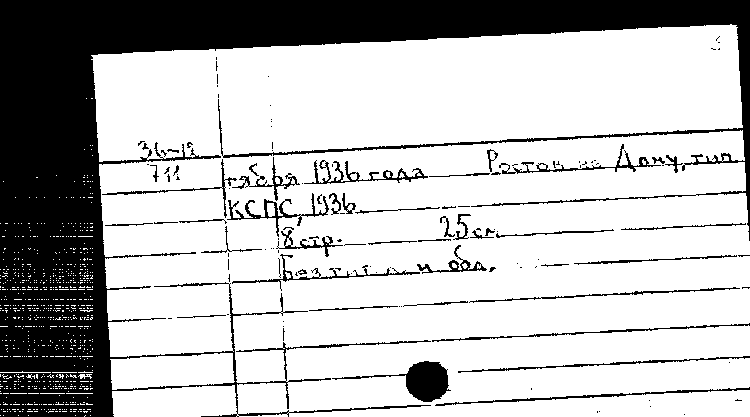 36-12
711
тября 1936 года Ростов на Дону, тип.
КСПС, 1936.
8 стр. 25 см.
Без тит. л. и обл.